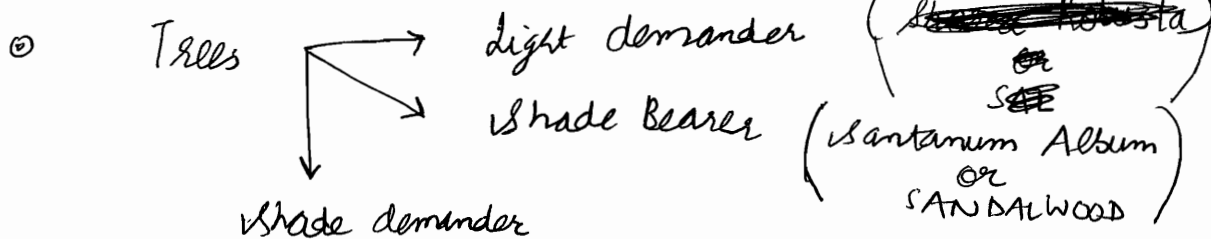 Trees
Light demander
Shade Bearer (Santanum Album
or
SANDALWOOD)
Shade demander